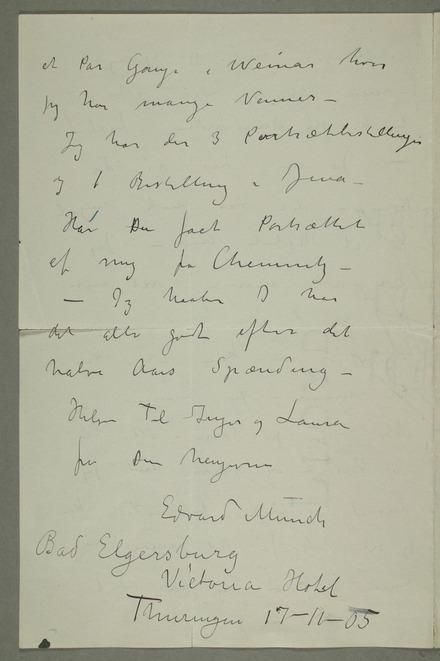 et Par Gange i Weimar hvor
jeg har mange Venner –
Jeg har der 3 Portrætbestillinger
og 1 Bestilling i Jena –
Har Du faaet Portrættet
af mig fra Chemnitz –
– Jeg haaber I har
det alle godt efter det
halve Aars Spænding –
Hilsen til Inger og Laura
fra Din hengivne
Edvard Munch
Bad Elgersburg
Victoria Hotel
Thuringen 17–11–05